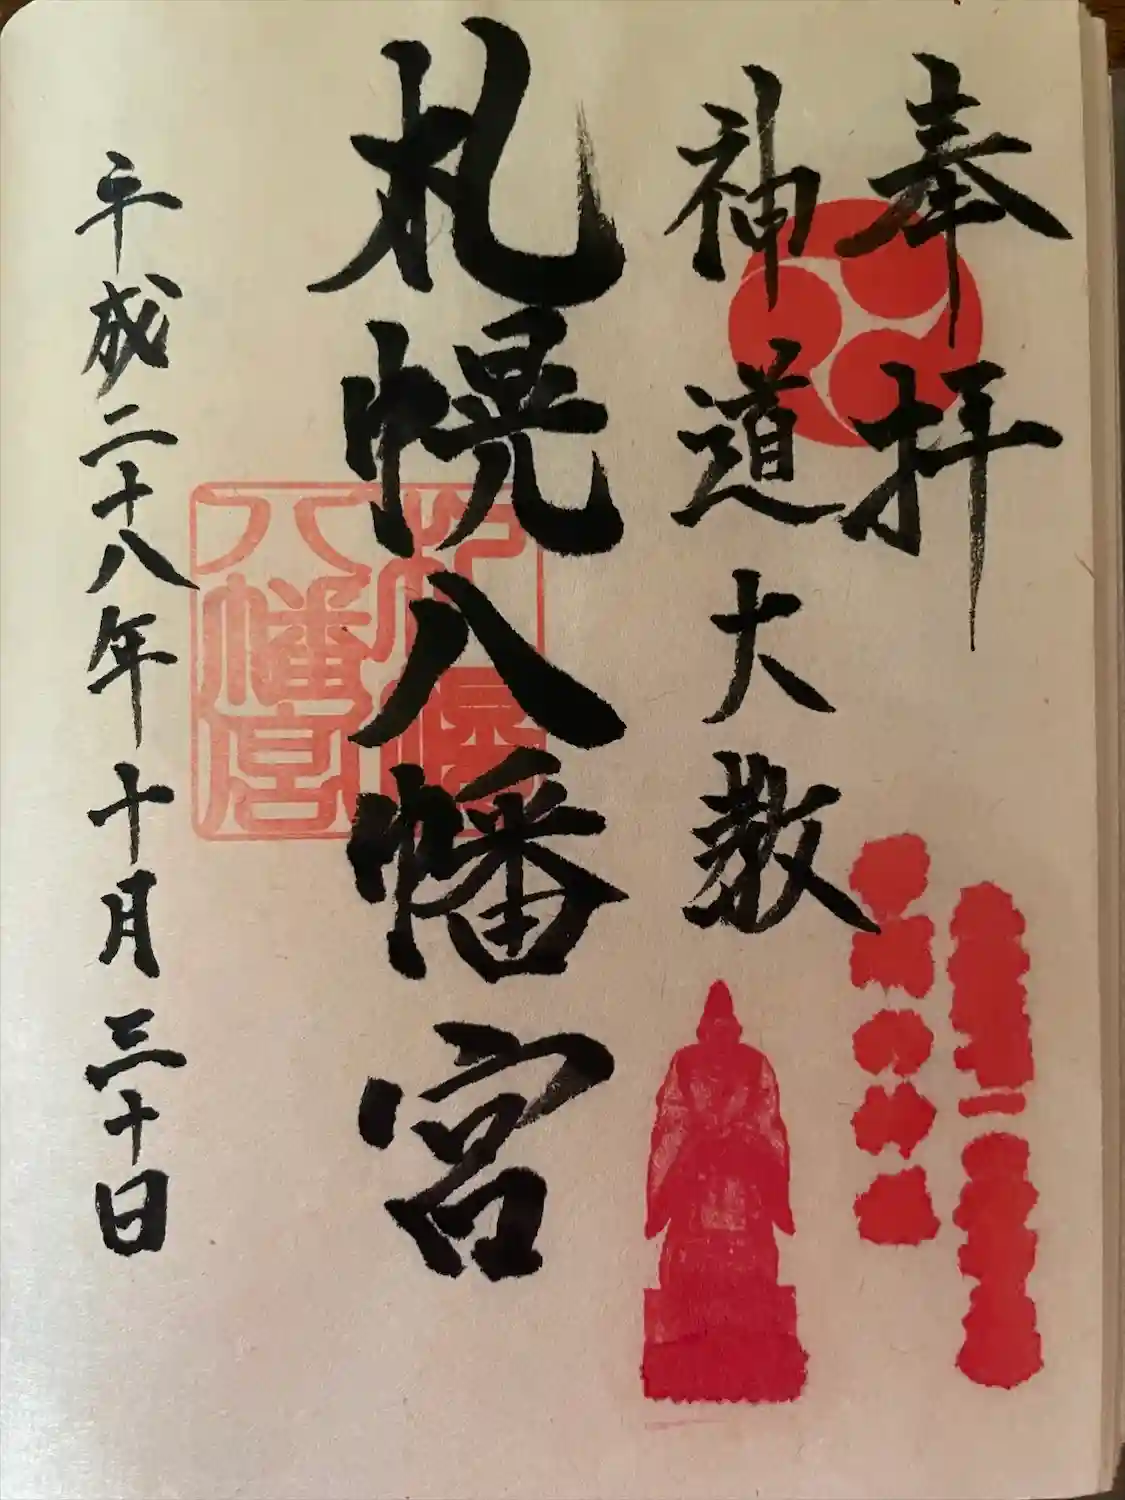 奉拝
神道大教
札幌八幡宮
札幌
八幡宮
平成二十八年十月三十日